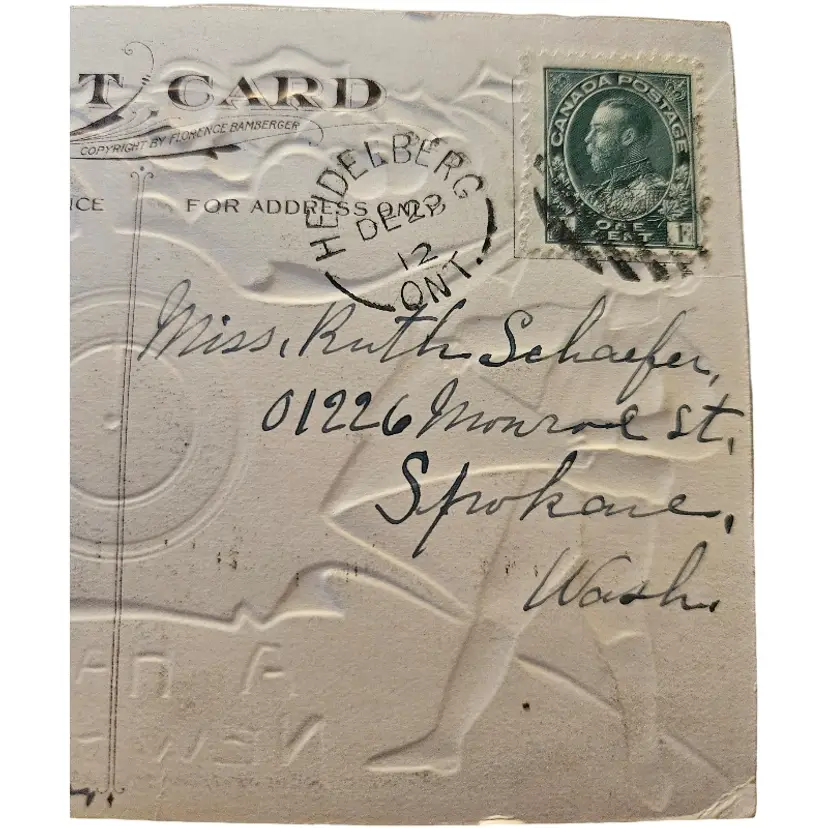 T CARD
COPYRIGHT BY FLORENCE BAMBERGER
CE
FOR ADDRESS ONLY
HEIDELBERG
DE 28
12
ONT.
CANADA POSTAGE
ONE
CENT
1
Miss, Ruth Schaefer,
01226 Monroe St,
Spokane,
Wash.
A
NEW